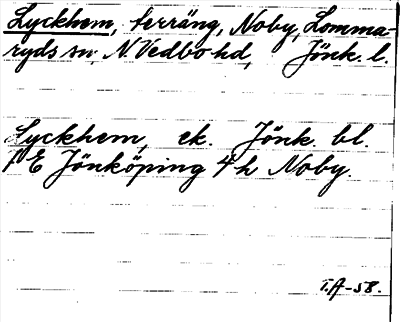 Lyckhem, terräng, Noby, Lomma-
ryds sn, N. Vedbo hd, Jönk. l.
Lyckhem, ek. Jönk. bl.
1 E Jönköping 4 h Noby.
T.A-58.